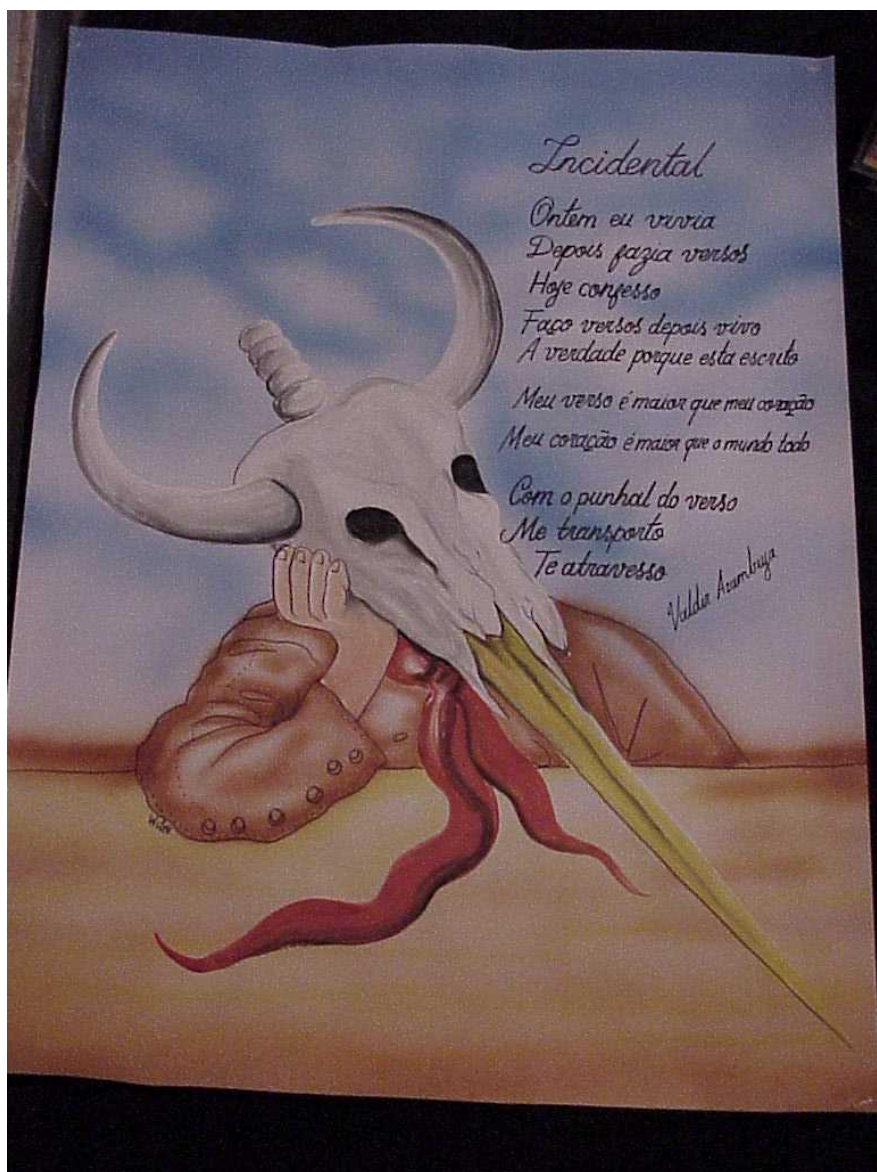 Incidental
Ontem eu vivia
Depois fazia versos
Hoje confesso
Faço versos depois vivo
A verdade porque esta escrito
Meu verso é maior que meu coração
Meu coração é maior que o mundo todo
Com o punhal do verso
Me transporto
Te atravesso
Valdir Arambuja